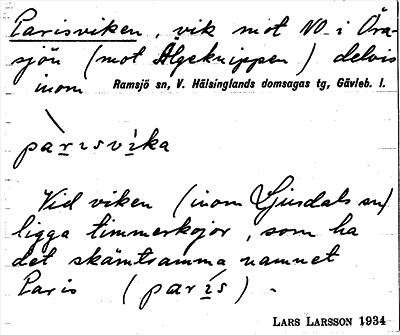 Parisviken, vik mot NO i Öra-
sjön (mot Älgeknippen) delvis
inom Ramsjö sn, V. Hälsinglands domsagas tg, Gävleb. l.
parisvika
Vid viken (inom Ljusdals sn)
ligga timmerkojor, som ha
det skämtsamma namnet
Paris (parís).
LARS LARSSON 1934